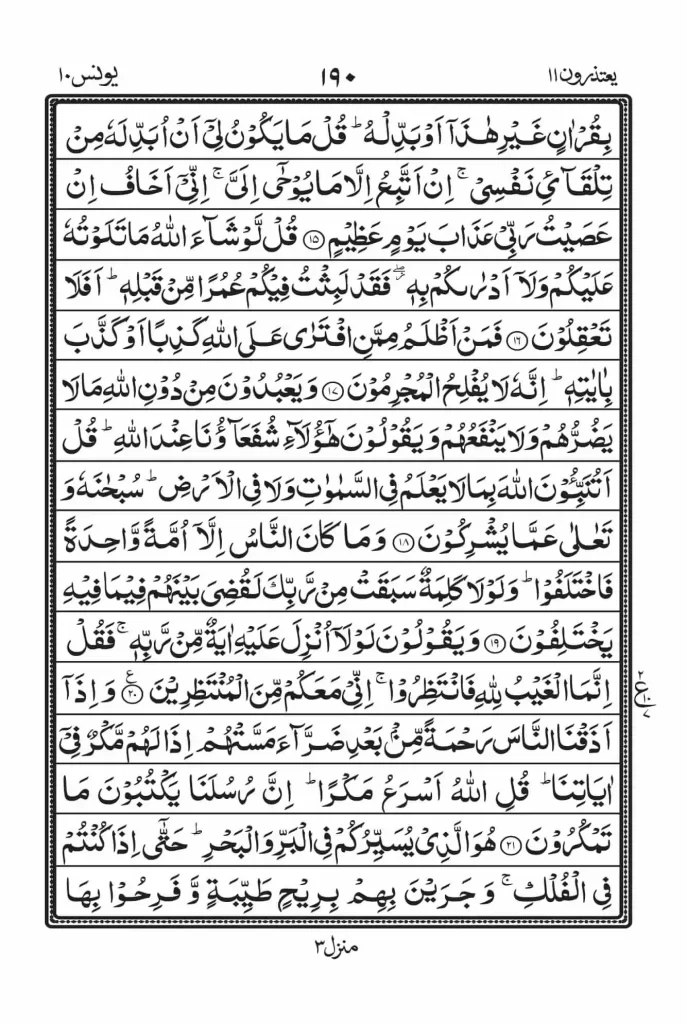 یعتذرون ۱۱ ۱۹۰ یونس ۱۰
بِقُرْاٰنٍ غَیْرِ هٰذَاۤ اَوْ بَدِّلْهُ ؕ قُلْ مَا یَكُوْنُ لِیْۤ اَنْ اُبَدِّلَهٗ مِنْ
تِلْقَآئِ نَفْسِیْ ۚ اِنْ اَتَّبِعُ اِلَّا مَا یُوْحٰۤی اِلَیَّ ۚ اِنِّیْۤ اَخَافُ اِنْ
عَصَیْتُ رَبِّیْ عَذَابَ یَوْمٍ عَظِیْمٍ ۝۱۵ قُلْ لَّوْ شَآءَ اللّٰهُ مَا تَلَوْتُهٗ
عَلَیْكُمْ وَلَاۤ اَدْرٰىكُمْ بِهٖ ۖؗ فَقَدْ لَبِثْتُ فِیْكُمْ عُمُرًا مِّنْ قَبْلِهٖ ؕ اَفَلَا
تَعْقِلُوْنَ ۝۱۶ فَمَنْ اَظْلَمُ مِمَّنِ افْتَرٰی عَلَی اللّٰهِ كَذِبًا اَوْ كَذَّبَ
بِاٰیٰتِهٖ ؕ اِنَّهٗ لَا یُفْلِحُ الْمُجْرِمُوْنَ ۝۱۷ وَ یَعْبُدُوْنَ مِنْ دُوْنِ اللّٰهِ مَا لَا
یَضُرُّهُمْ وَلَا یَنْفَعُهُمْ وَ یَقُوْلُوْنَ هٰۤؤُلَآءِ شُفَعَآؤُنَا عِنْدَ اللّٰهِ ؕ قُلْ
اَتُنَبِّـُٔوْنَ اللّٰهَ بِمَا لَا یَعْلَمُ فِی السَّمٰوٰتِ وَلَا فِی الْاَرْضِ ؕ سُبْحٰنَهٗ وَ
تَعٰلٰی عَمَّا یُشْرِكُوْنَ ۝۱۸ وَ مَا كَانَ النَّاسُ اِلَّاۤ اُمَّةً وَّاحِدَةً
فَاخْتَلَفُوْا ؕ وَ لَوْلَا كَلِمَةٌ سَبَقَتْ مِنْ رَّبِّكَ لَقُضِیَ بَیْنَهُمْ فِیْمَا فِیْهِ
یَخْتَلِفُوْنَ ۝۱۹ وَ یَقُوْلُوْنَ لَوْلَاۤ اُنْزِلَ عَلَیْهِ اٰیَةٌ مِّنْ رَّبِّهٖ ۚ فَقُلْ
اِنَّمَا الْغَیْبُ لِلّٰهِ فَانْتَظِرُوْا ۚ اِنِّیْ مَعَكُمْ مِّنَ الْمُنْتَظِرِیْنَ ۝۲۰ ع وَ اِذَاۤ
۲ ع ۱۰ ۷
اَذَقْنَا النَّاسَ رَحْمَةً مِّنْۢ بَعْدِ ضَرَّآءَ مَسَّتْهُمْ اِذَا لَهُمْ مَّكْرٌ فِیْۤ
اٰیَاتِنَا ؕ قُلِ اللّٰهُ اَسْرَعُ مَكْرًا ؕ اِنَّ رُسُلَنَا یَكْتُبُوْنَ مَا
تَمْكُرُوْنَ ۝۲۱ هُوَ الَّذِیْ یُسَیِّرُكُمْ فِی الْبَرِّ وَ الْبَحْرِ ؕ حَتّٰۤی اِذَا كُنْتُمْ
فِی الْفُلْكِ ۚ وَ جَرَیْنَ بِهِمْ بِرِیْحٍ طَیِّبَةٍ وَّ فَرِحُوْا بِهَا
منزل ۳